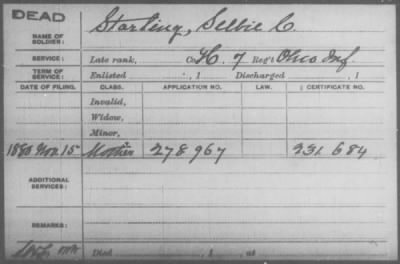 DEAD
NAME OF SOLDIER: Starling, Selbie C.
SERVICE: Late rank, Co. H, 7 Reg't Ohio Inf.
TERM OF SERVICE: Enlisted , 1 Discharged , 1
DATE OF FILING. CLASS. APPLICATION NO. LAW. CERTIFICATE NO.
Invalid,
Widow,
Minor,
1880 Nov. 15 Mother 278967 231684
ADDITIONAL SERVICES:
REMARKS:
Died , 1 , at